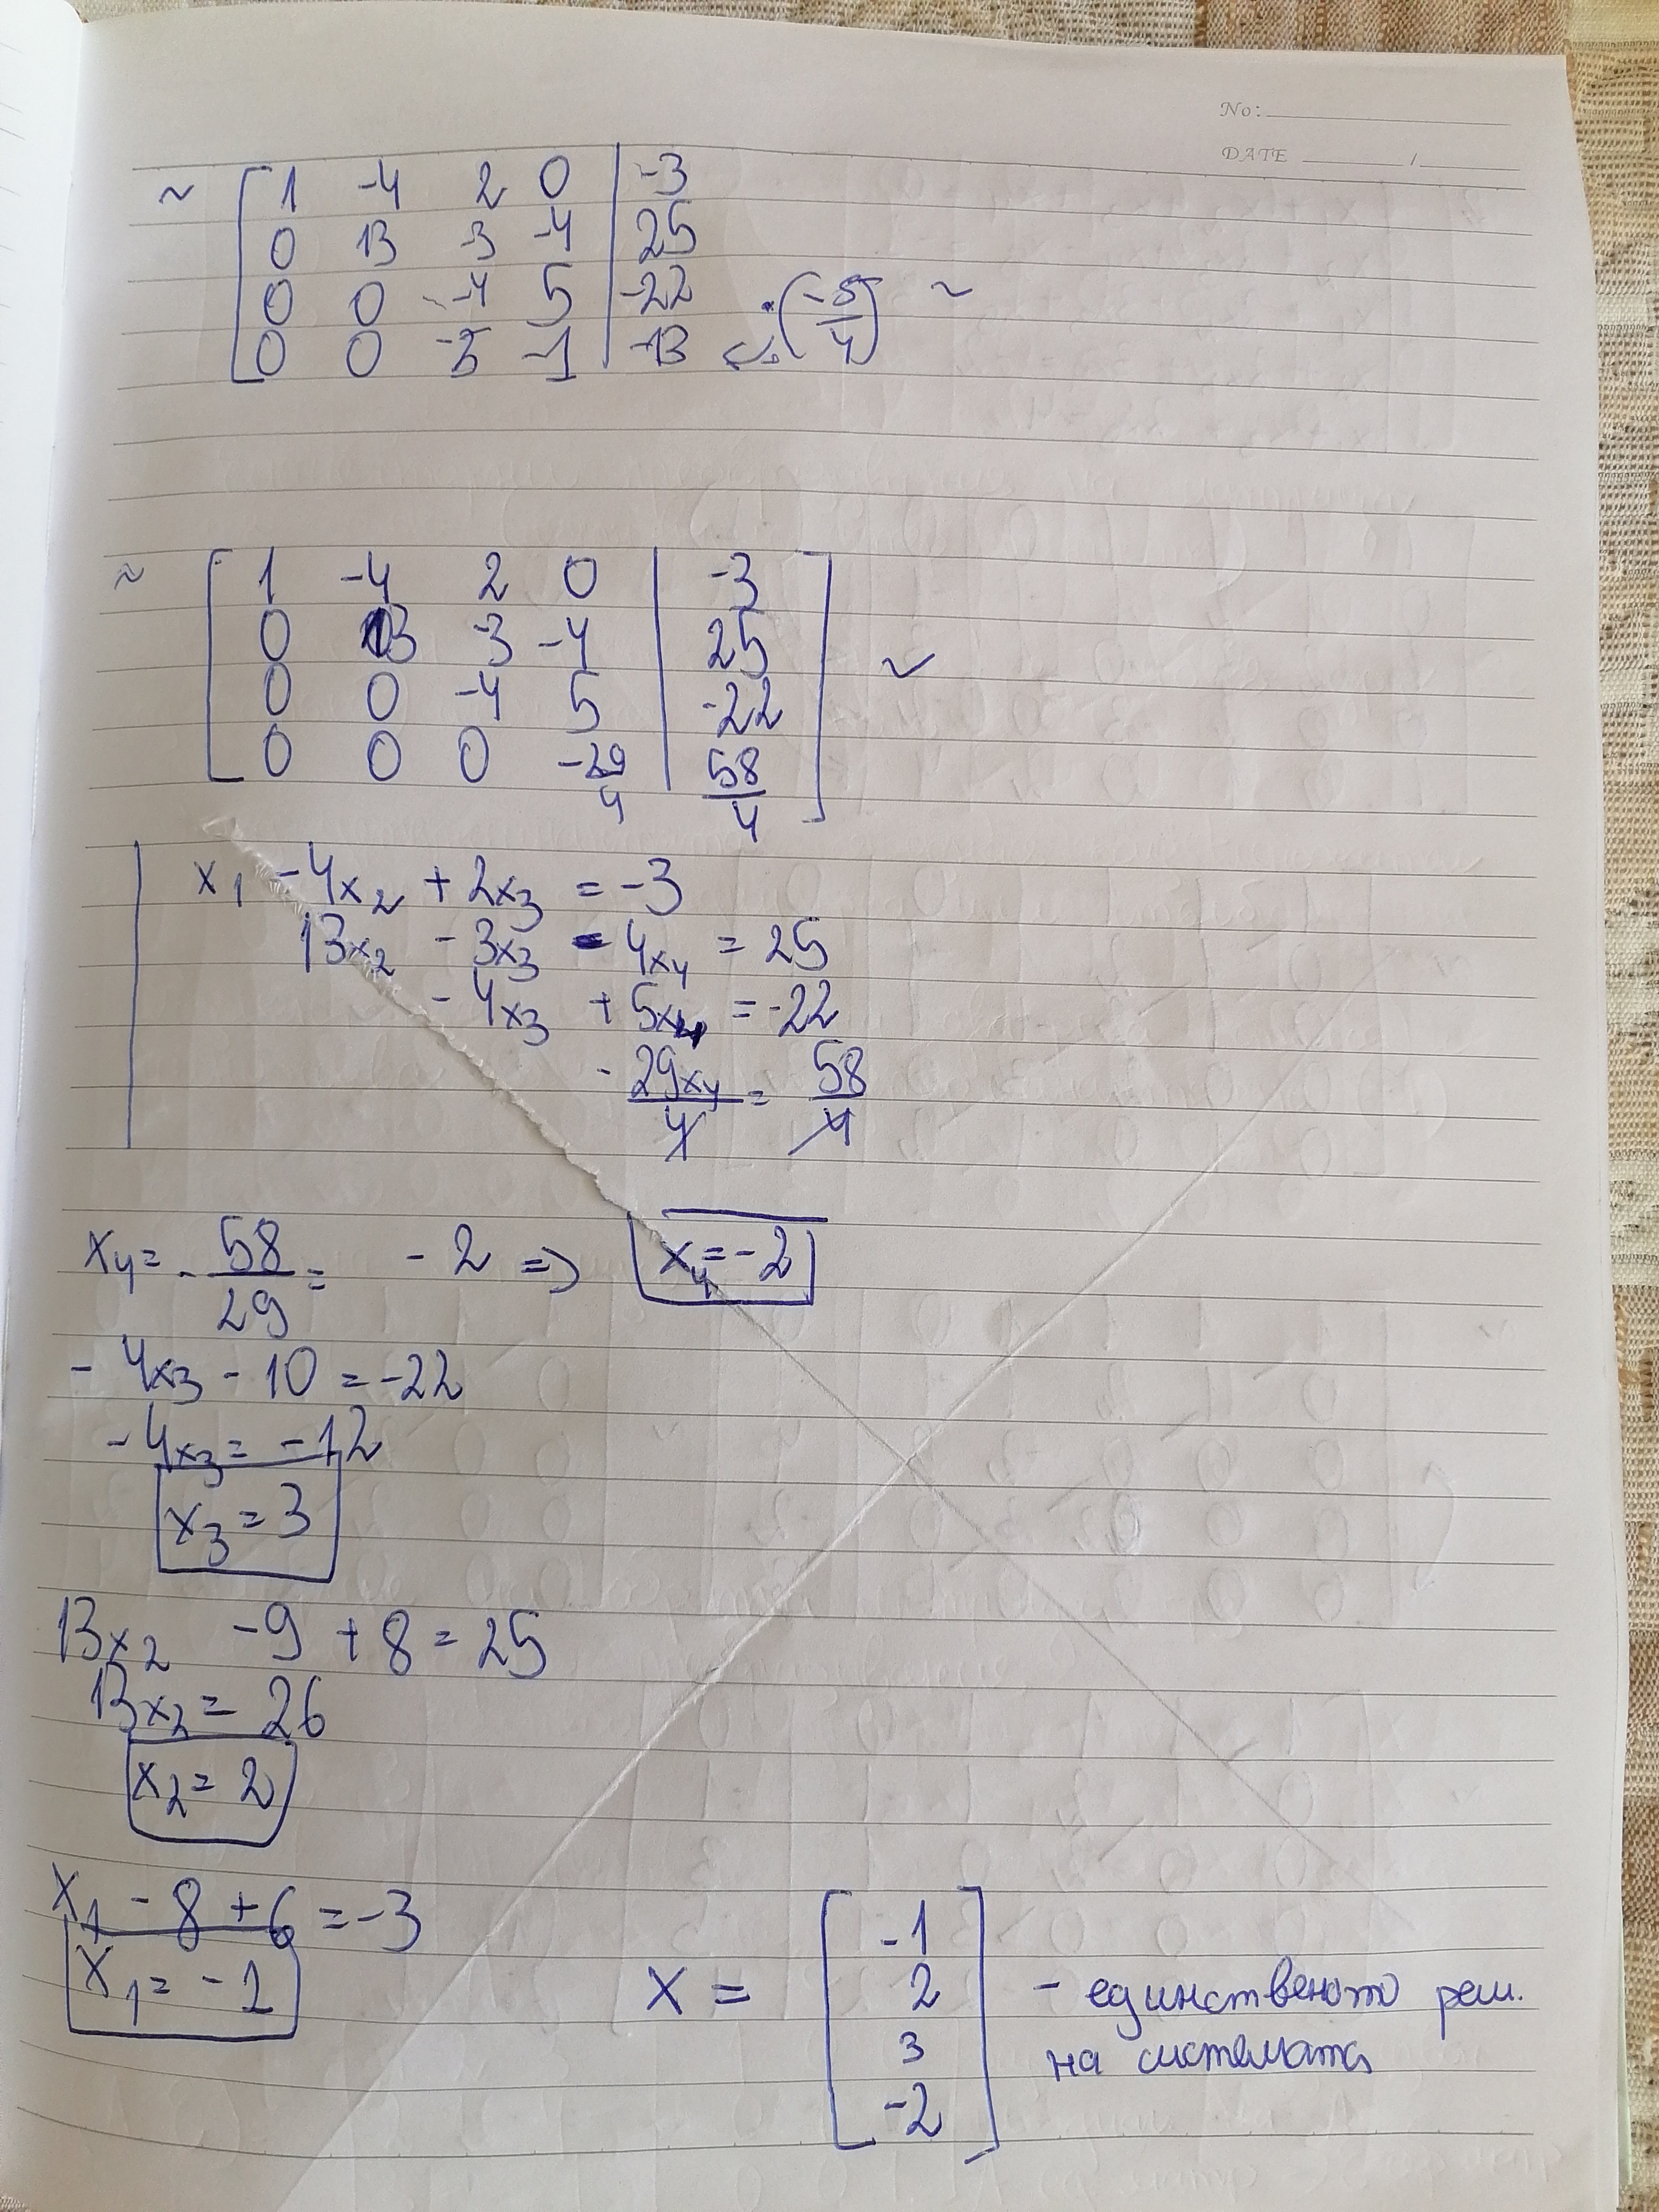 No:
DATE /
~ [ 1 -4 2 0 | -3
0 13 -3 -4 | 25
0 0 -4 5 | -22 · (-5/4) ~
0 0 -5 -1 | -13
~ [ 1 -4 2 0 | -3 ] ~
0 13 -3 -4 | 25
0 0 -4 5 | -22
0 0 0 -29/4 | 58/4
x₁ - 4x₂ + 2x₃ = -3
13x₂ - 3x₃ - 4x₄ = 25
- 4x₃ + 5x₄ = -22
- 29x₄/4 = 58/4
x₄ = - 58/29 = - 2 => x₄ = -2
- 4x₃ - 10 = -22
- 4x₃ = -12
x₃ = 3
13x₂ - 9 + 8 = 25
13x₂ = 26
x₂ = 2
x₁ - 8 + 6 = -3
x₁ = -1
X = [ -1
2
3
-2 ] - единственото реш.
на системата